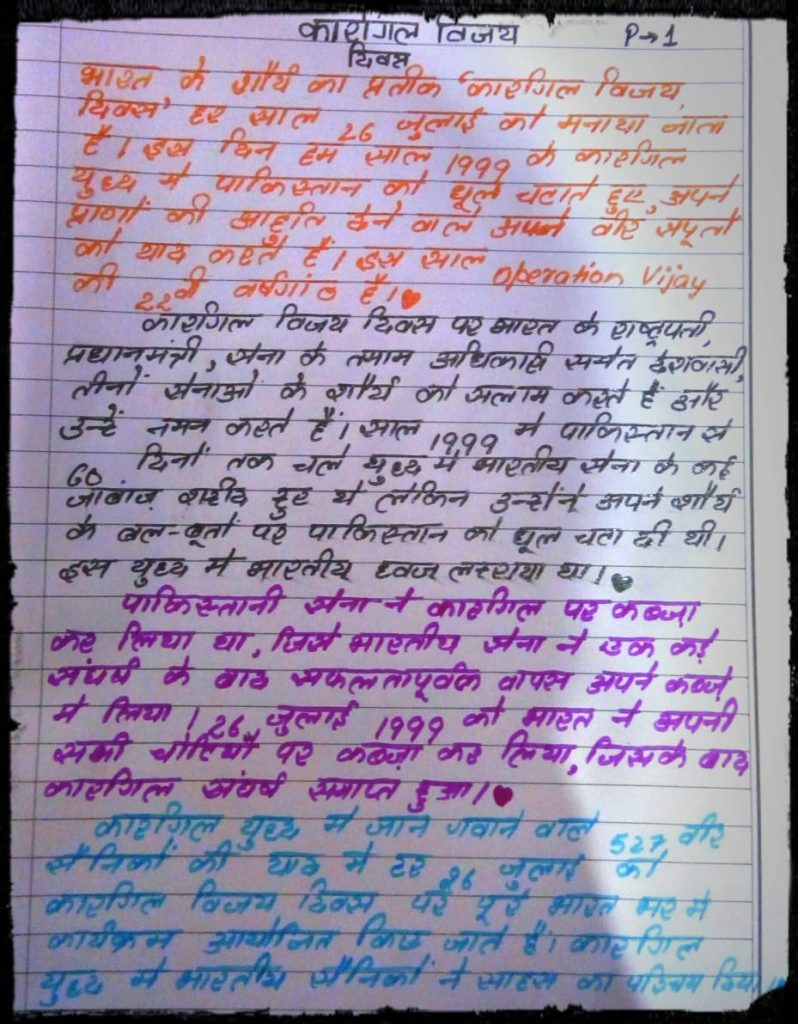 कारगिल विजय P→1
दिवस
भारत के शौर्य का प्रतीक 'कारगिल विजय
दिवस' हर साल 26 जुलाई को मनाया जाता
है। इस दिन हम साल 1999 के कारगिल
युध्य मे पाकिस्तान को धूल चटाते हुए, अपने
प्राणों की आहुति देने वाले अपने वीर सपूतों
को याद करते हैं। इस साल Operation Vijay
की 22वी वर्षगांठ है।♥
कारगिल विजय दिवस पर भारत के राष्ट्रपती,
प्रधानमंत्री, सेना के तमाम अधिकारी समेत देशवासी,
तीनों सेनाओं के शौर्य को सलाम करते हैं और
उन्हें नमन करते हैं। साल 1999 मे पाकिस्तान से
60 दिनों तक चले युध्य मे भारतीय सेना के कई
जांबाज़ शहीद हुए थे लेकिन उन्होंने अपने शौर्य
के बल-बूतों पर पाकिस्तान को धूल चटा दी थी।
इस युध्य मे भारतीय ध्वज लहराया था।♥
पाकिस्तानी सेना ने कारगिल पर कब्ज़ा
कर लिया था, जिसे भारतीय सेना ने एक कड़े
संघर्ष के बाद सफलतापूर्वक वापस अपने कब्ज़े
मे लिया। 26 जुलाई 1999 को भारत ने अपनी
सभी चोटियों पर कब्ज़ा कर लिया, जिसके बाद
कारगिल संघर्ष समाप्त हुआ।♥
कारगिल युध्य मे जान गवाने वाले 527 वीर
सैनिकों की याद मे हर 26 जुलाई को
कारगिल विजय दिवस पर पूरे भारत भर मे
कार्यक्रम आयोजित किए जाते हैं। कारगिल
युध्य मे भारतीय सैनिकों ने साहस का परिचय दिया।